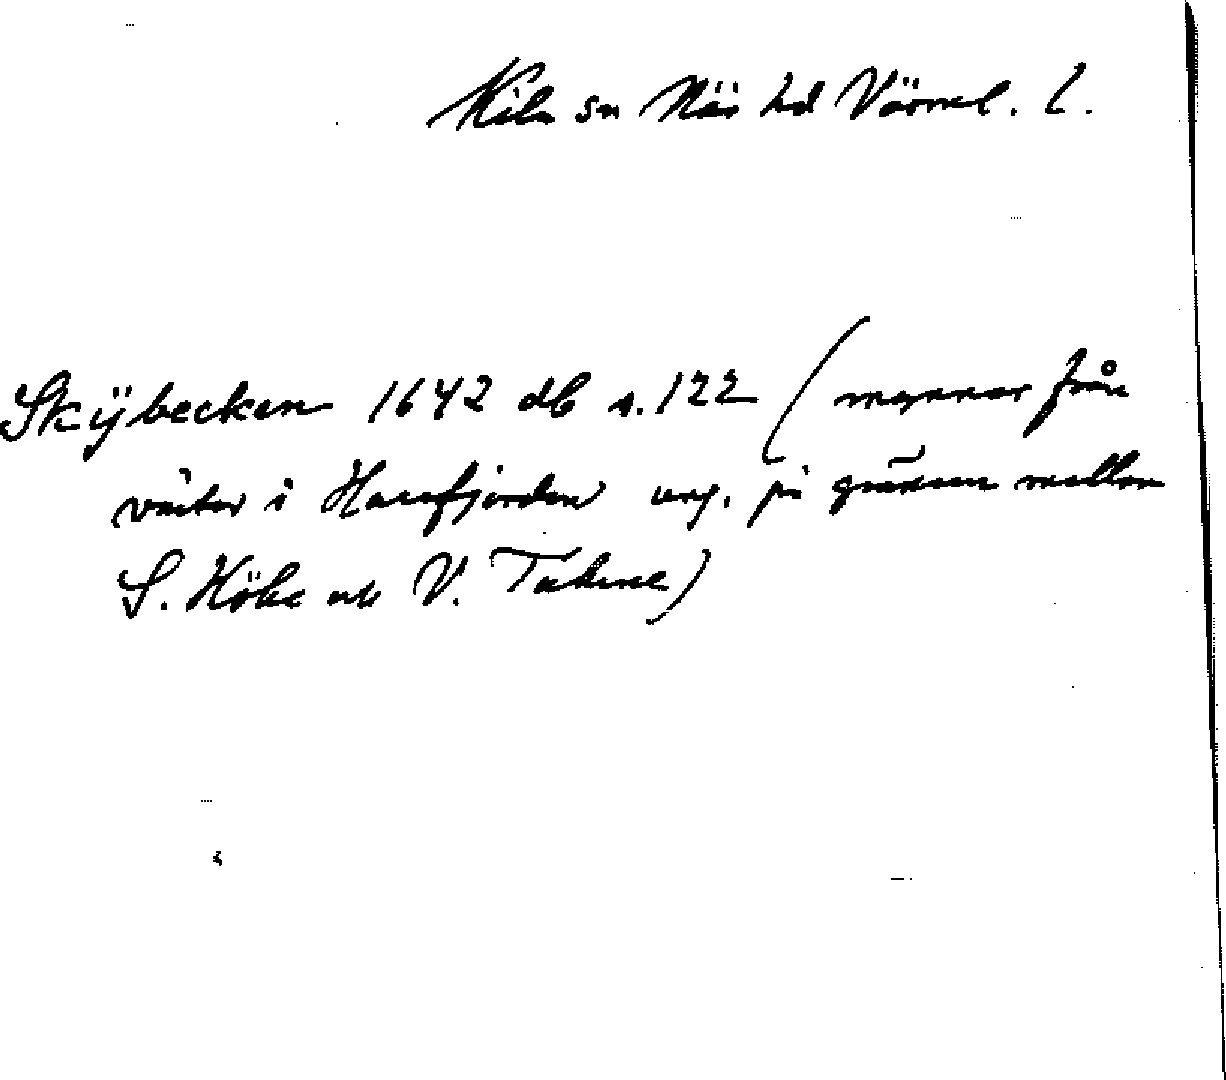 Kila sn Näs hd Värml. l.
Skÿbecken 1642 db s. 122 (mynnar från
väster i Harefjorden ung. på gränsen mellan
S. Höke och V. Takene)